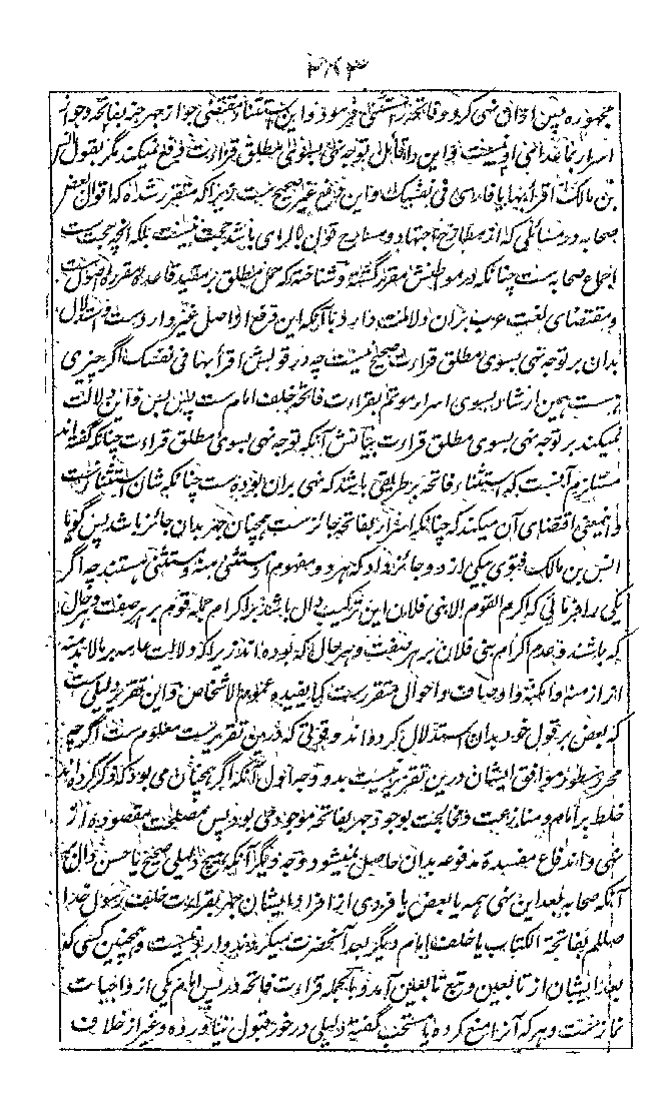 ۲۸۳
بجهر وفاتحه را مستثنی فرمود و این استثناء مقتضی جواز جهر بفاتحه و جواز
اسرار بماعدای اوست و این را قابل توجه نهی بسوی مطلق قراءت دفع میکند مگر بقول انس
بن مالک اقرأ بها یا فارسی فی نفسک و این دفع غیر صحیح ست زیرا که متقرر شده که اقوال بعض
صحابه در مسائلی که از مطارح اجتهاد و مسارح قول بالرای باشد حجت نیست بلکه انچه حجت ست
اجماع صحابه ست چنانکه در مواطنش مقرر گشته و شناخته که حمل مطلق بر مقید قاعده مقرره اصول ست
و مقتضای لغت عرب بران دلالت دارد با آنکه این دفع از اصل غیر وارد ست و استدلال
بدان بر توجه نهی بسوی مطلق قراءت صحیح نیست چه در قولش اقرأ بها فی نفسک اگر چیزی
هست همین ارشاد بسوی اسرار موتم بقراءت فاتحه خلف امام ست پس و این دلالت
نمیکند بر توجه نهی بسوی مطلق قراءت بیانش آنکه توجه نهی بسوی مطلق قراءت چنانکه گفته اند
مستلزم آنست که استثناء فاتحه بر طریقی باشد که نهی بران بوده ست چنانکه شان استثناء ست
و اینمعنی اقتضای آن میکند که چنانکه اسرار بفاتحه جائز ست همچنان جهر بدان جائز باشد پس گویا
انس بن مالک فتوی بیکی از دو جائز داد که هر دو مفهوم از مستثنی منه و مستثنی هستند چه اگر
یکی را فرمائی که اکرم القوم الا بنی فلان این ترکیب دال باشد بر اکرام جمله قوم بر هر صفت و هر حال
که باشند و عدم اکرام بنی فلان بر هر صفت و هر حال که بوده اند زیرا که دلالت عامه بر مالابد منه
از ازمنه و امکنه و اوصاف و احوال متقرر ست کما یفیده عموم الاشخاص و این تقریر دلیلی ست
که بعض بر قول خود بدان استدلال کرده اند و قوتی که درین تقریر ست معلوم ست اگر چه
محرر سطور موافق ایشان درین تقریر نیست بدو وجه اول آنکه اگر همچنان می بود که ذکر کرده اند
خلط بر امام و منازعت و مخالجت بوجود جهر بفاتحه موجود می بود پس مصلحت مقصوده از
نهی و اندفاع مفسده مدفوعه بدان حاصل نمیشود و وجه دیگر آنکه هیچ دلیلی صحیح یا حسن دال بر
آنکه صحابه بعد این نهی همه یا بعض یا فردی از افراد ایشان جهر بقراءت خلف رسول خدا
صللم بفاتحة الکتاب یا خلف امام دیگر بعد آنحضرت میکردند وارد نیست و همچنین کسی که
بعد ایشان از تابعین و تبع تابعین آمد و بالجمله قراءت فاتحه در پس امام یکی از واجبات
نماز ست و هر که آنرا منع کرده یا مستحب گفته دلیلی در خور قبول نیاورده و غیر از خلاف